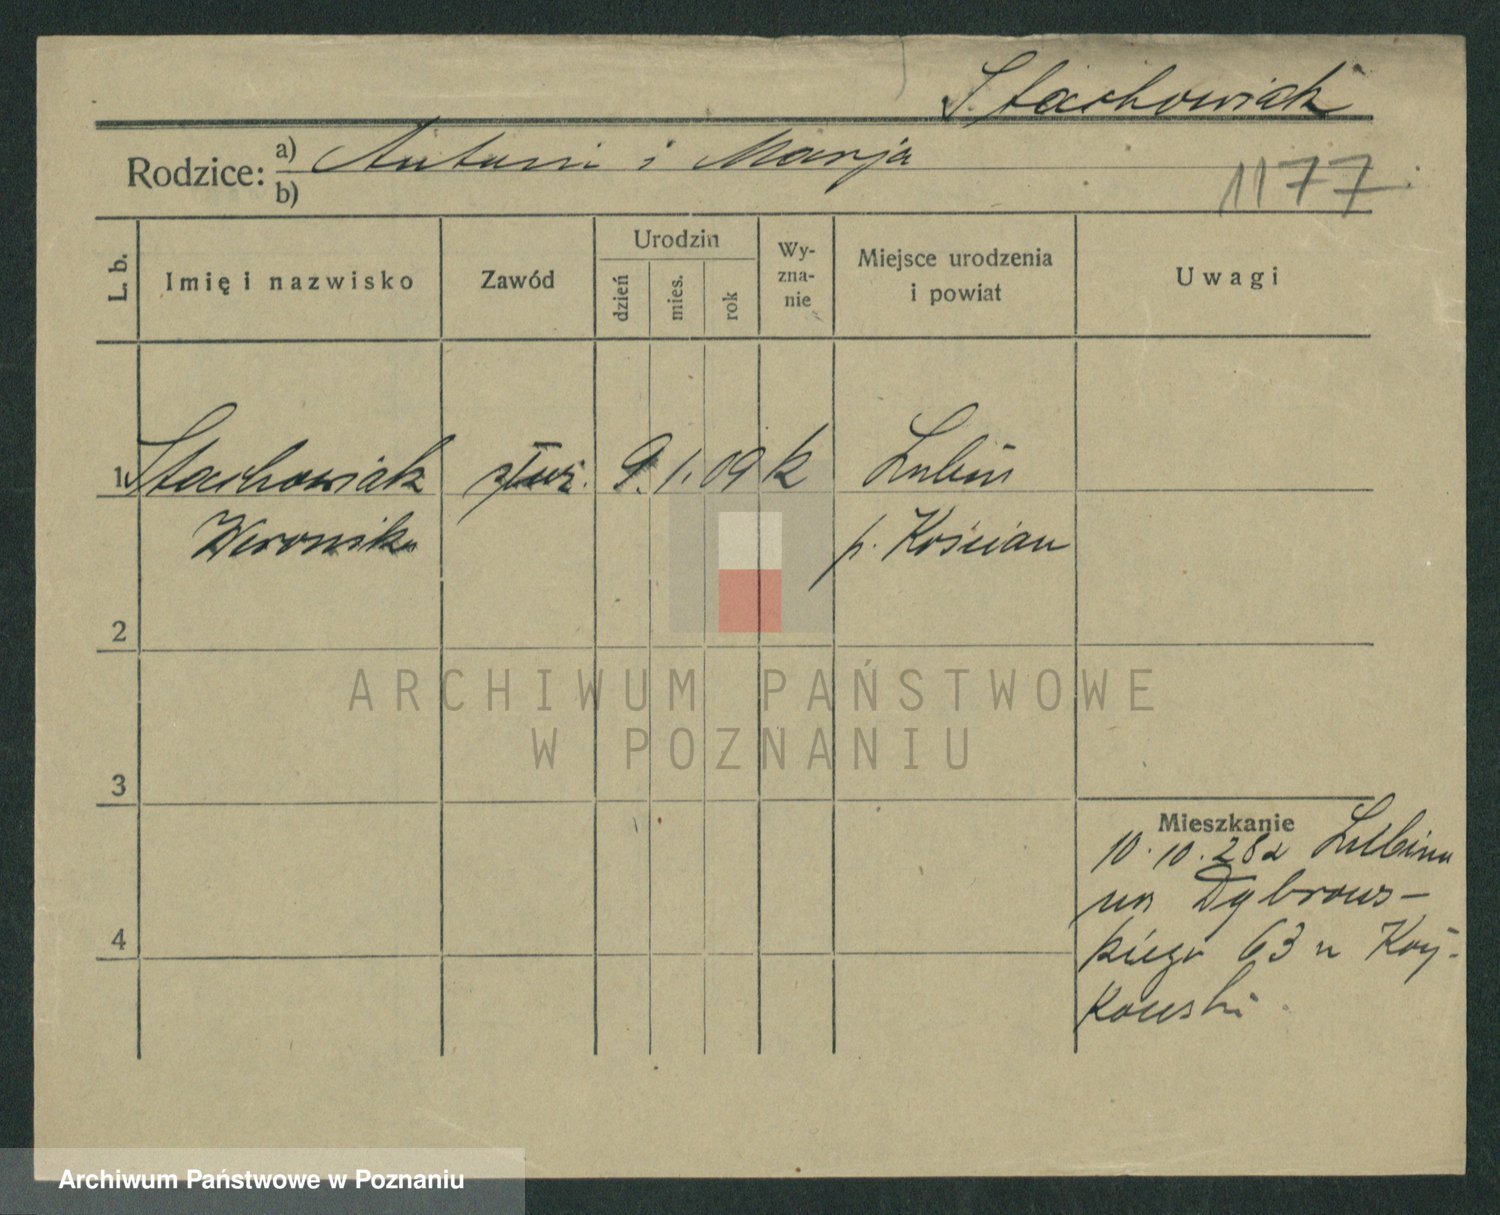 Stachowiak
Rodzice: a) Antoni i Marja
b)
1177
L. b.
Imię i nazwisko
Zawód
Urodzin
dzień
mies.
rok
Wy-
zna-
nie
Miejsce urodzenia
i powiat
Uwagi
1 Stachowiak służ. 9. 1. 09 k Lubiń
Weronika p. Kościan
2
3
4
Mieszkanie
10.10.28 z Lubinia
na Dąbrows-
kiego 63 u
kowski
ARCHIWUM PAŃSTWOWE
W POZNANIU
Archiwum Państwowe w Poznaniu